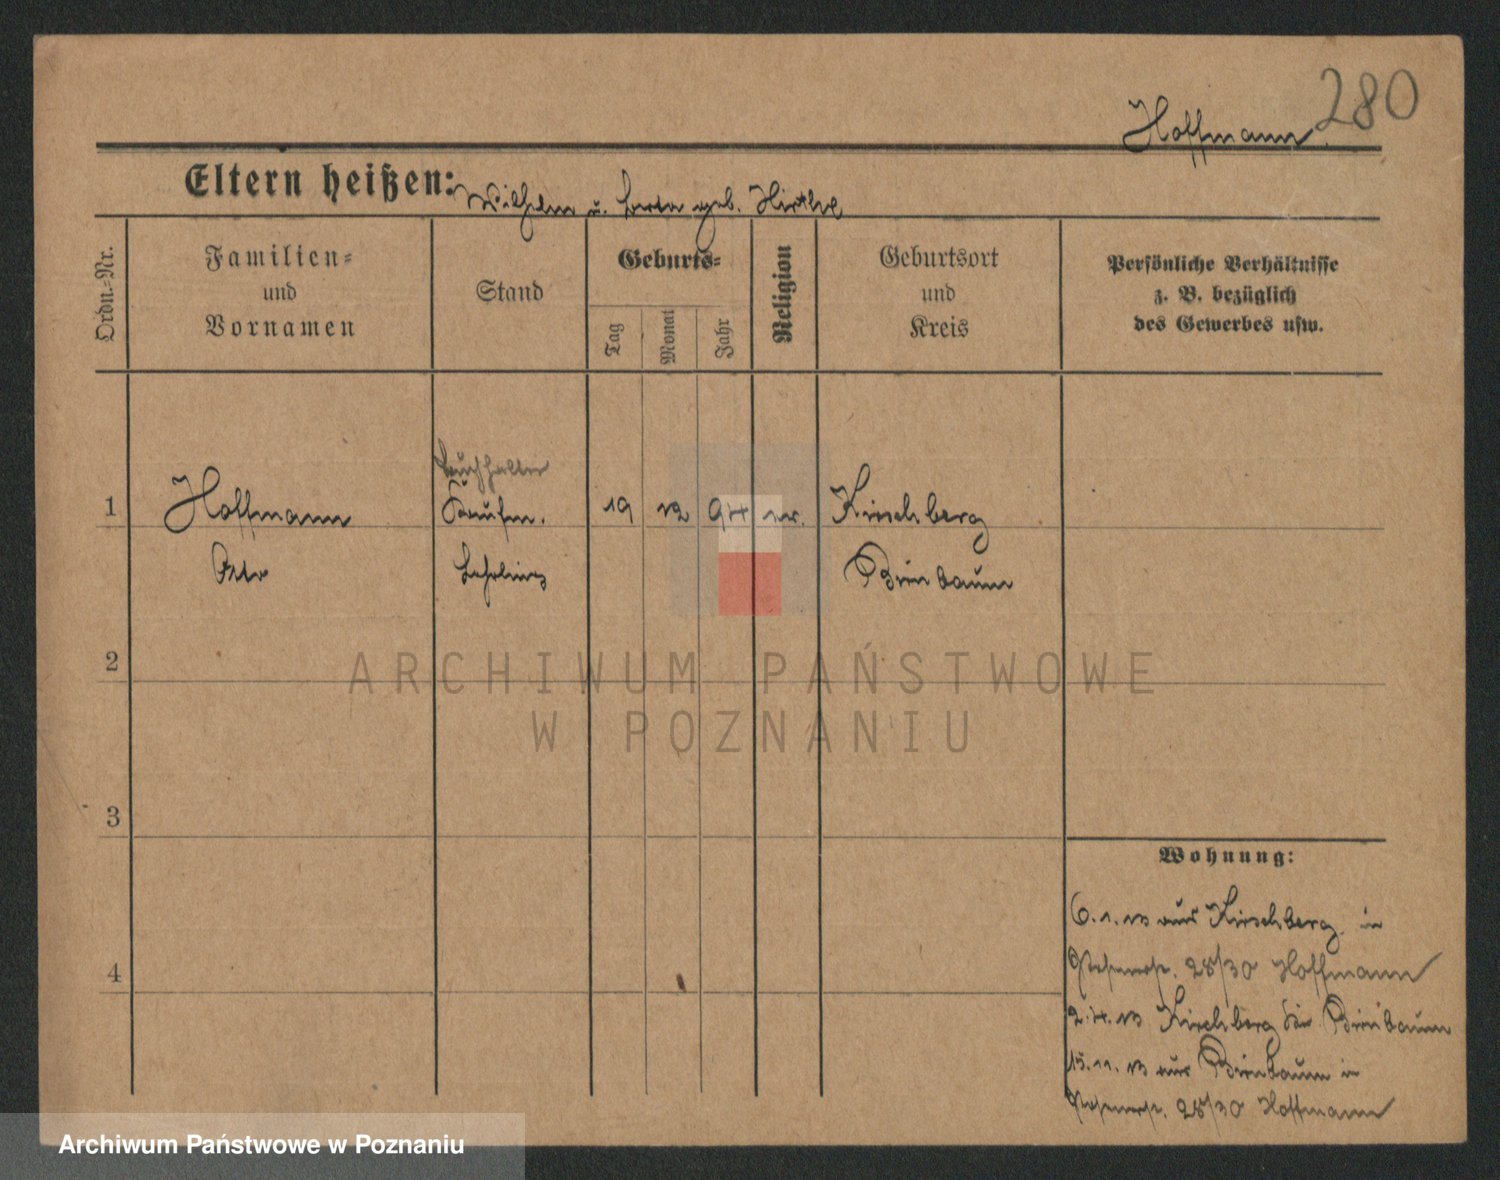 280
Hoffmann
Eltern heißen: Wilhelm u. geb.
Ordn.-Nr.
Familien-
und
Vornamen
Stand
Geburts-
Tag
Monat
Jahr
Religion
Geburtsort
und
Kreis
Persönliche Verhältnisse
z. B. bezüglich
des Gewerbes usw.
Buchhalter
1 Hoffmann Kaufm. 19 12 94 ev. Kirschberg
Otto Lehrling Birnbaum
2
3
4
ARCHIWUM PAŃSTWOWE
W POZNANIU
Wohnung:
6.1.13 aus Kirschberg in
28/30 Hoffmann
2.4.13 Kirschberg Birnbaum
15.11.13 aus Birnbaum in
28/30 Hoffmann
Archiwum Państwowe w Poznaniu